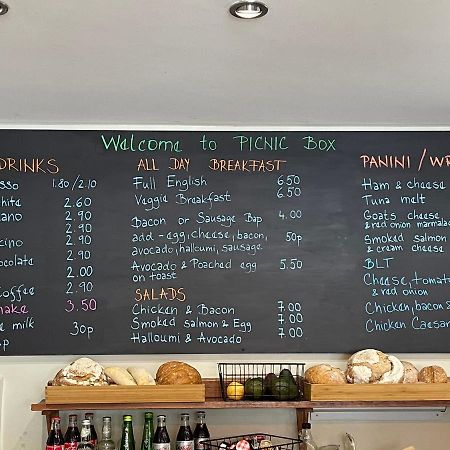 Welcome to PICNIC BOX
DRINKS
1.80/2.10
2.60
2.90
2.90
2.90
2.90
2.00
2.90
3.50
milk 30p
ALL DAY BREAKFAST
Full English 6.50
Veggie Breakfast 6.50
Bacon or Sausage Bap 4.00
add - egg, cheese, bacon, 50p
avocado, halloumi, sausage
Avocado & Poached egg 5.50
on toast
SALADS
Chicken & Bacon 7.00
Smoked salmon & Egg 7.00
Halloumi & Avocado 7.00
PANINI /
Ham & cheese
Tuna melt
Goats cheese,
& red onion marmalad
Smoked salmon
& cream cheese
BLT
Cheese, tomato
& red onion
Chicken, bacon &
Chicken Caesar